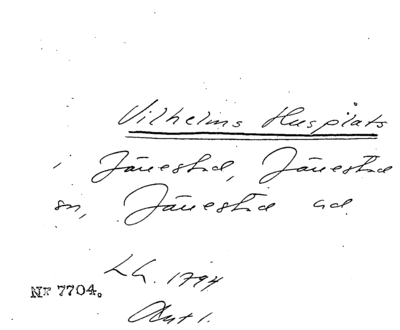 Vilhelms Husplats
i Jänestad, Jänestad
sn, Jänestad hd.
LA. 1794
Akt 1.
Nr 7704.